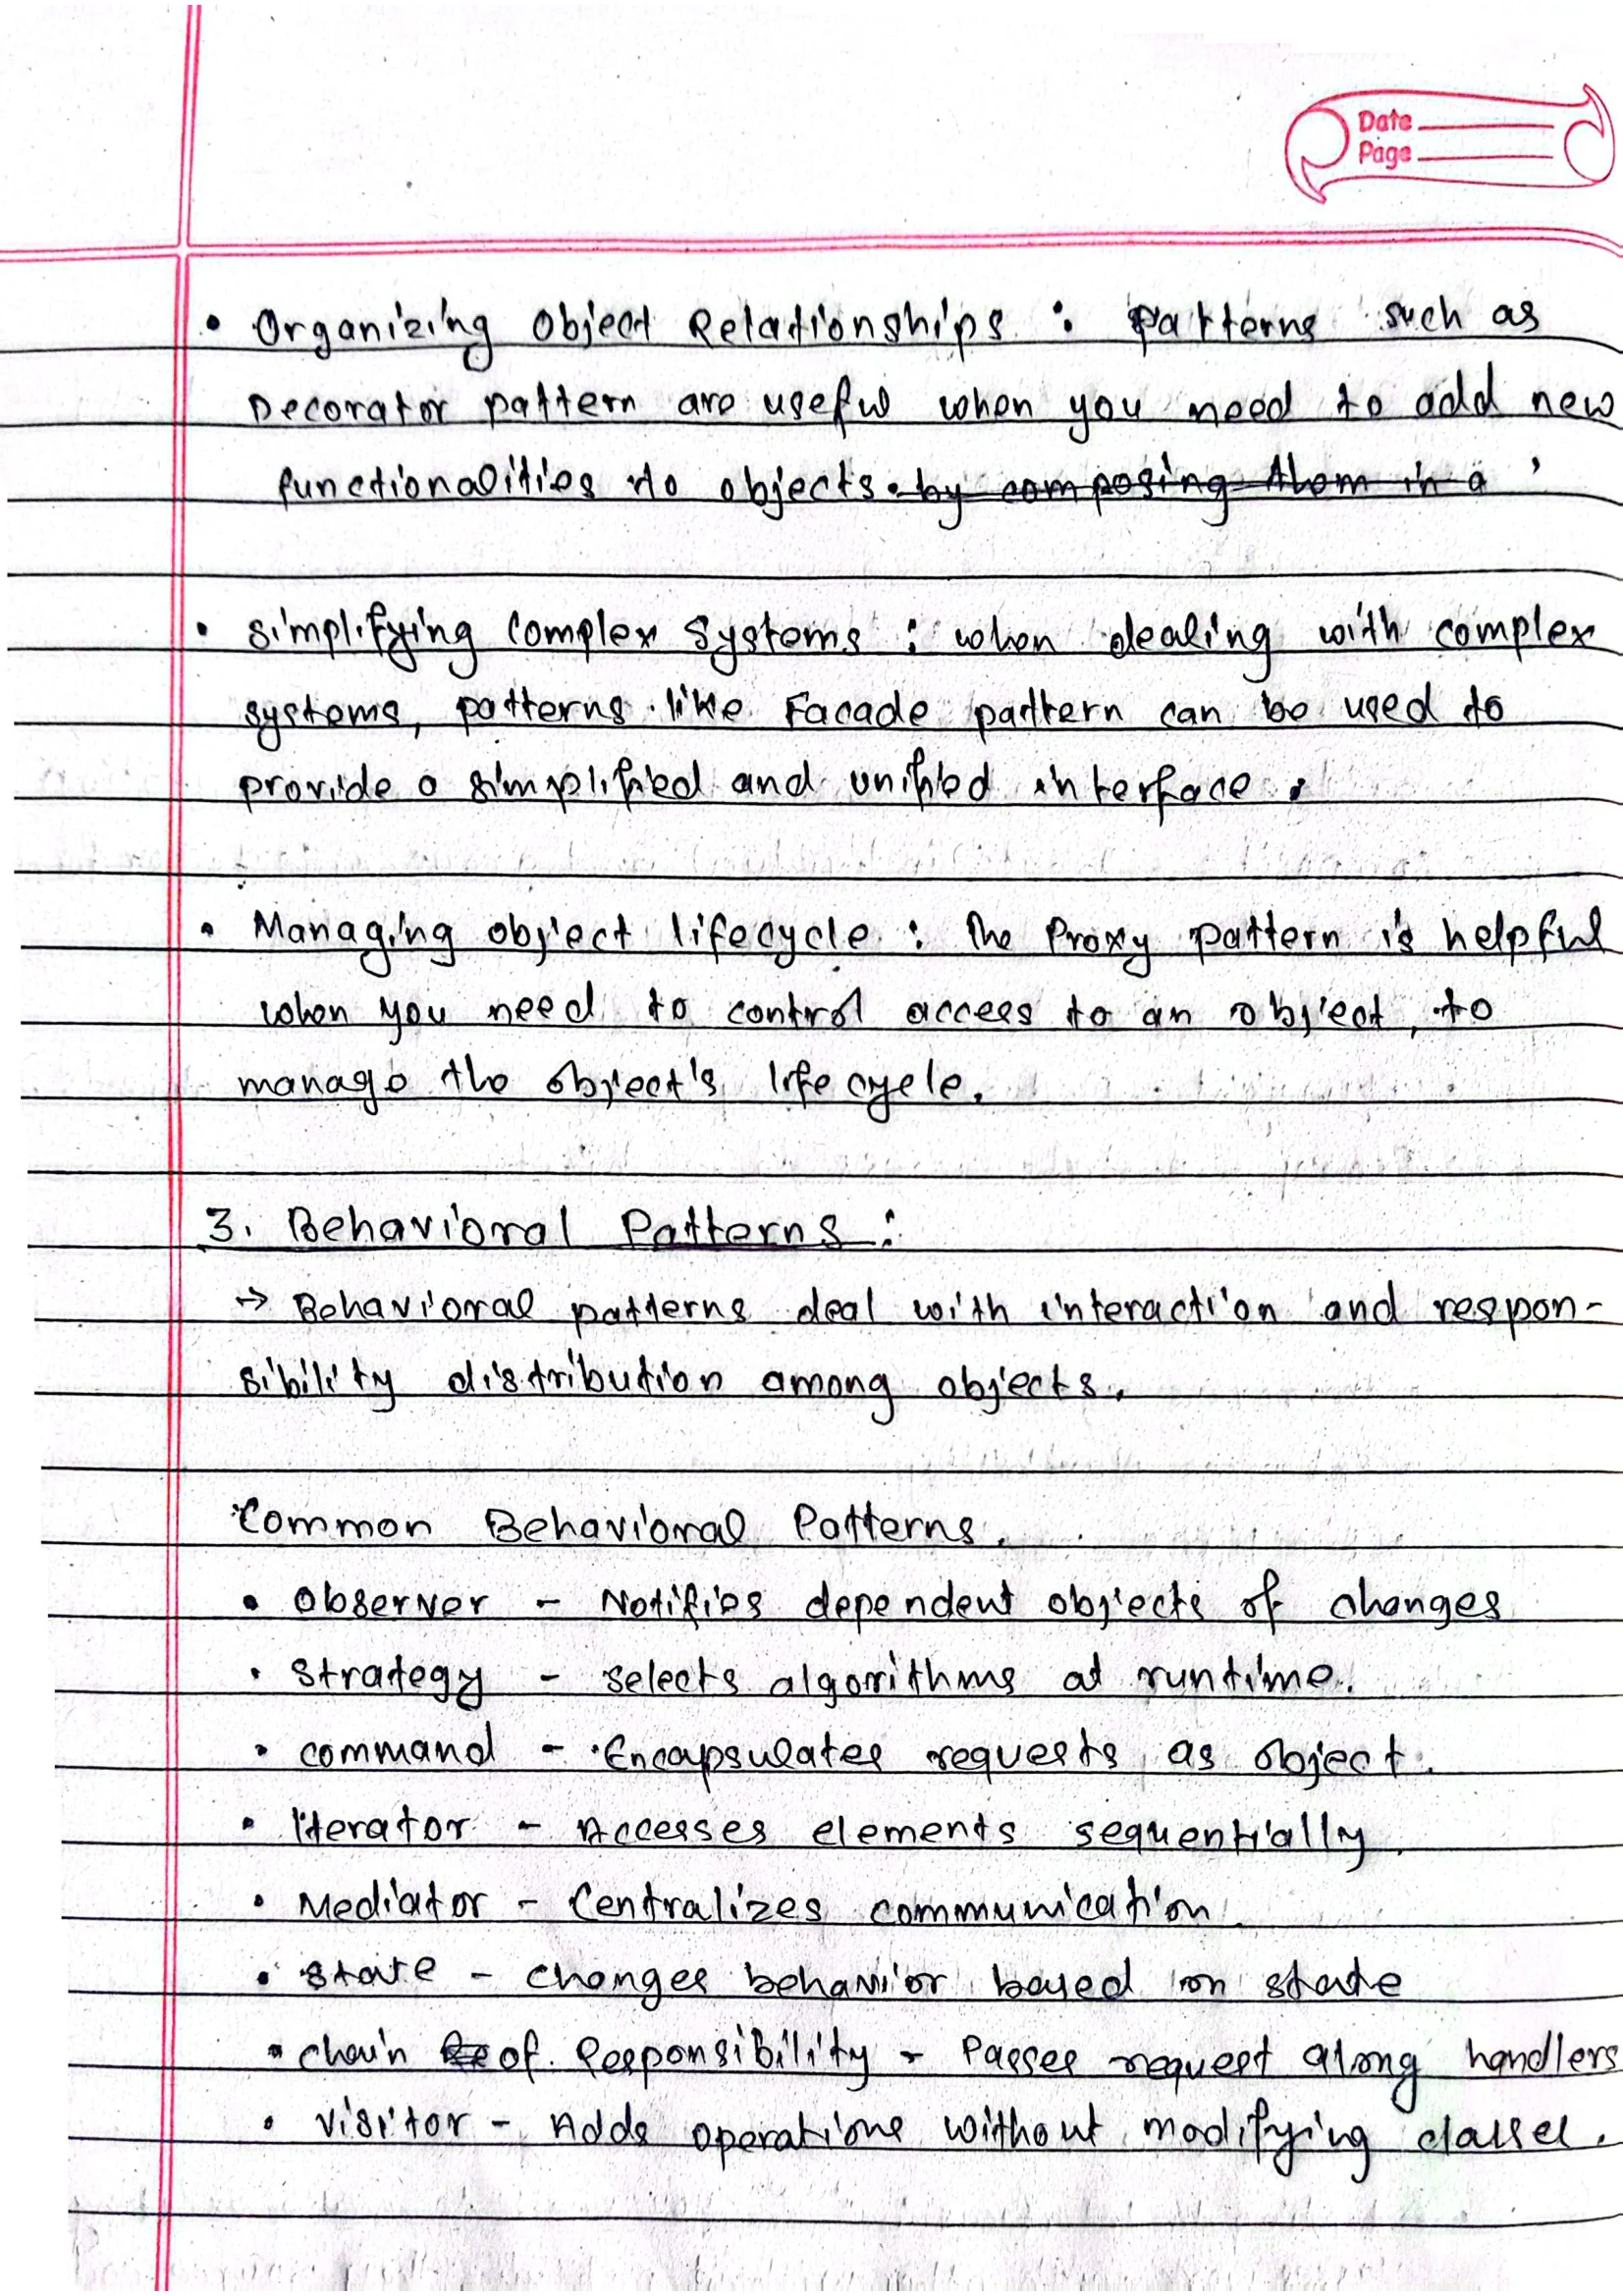 Date
Page
• Organizing Object Relationships : Patterns such as
Decorator pattern are useful when you need to add new
functionalities to objects. ~~by composing them in a~~
• Simplifying Complex Systems : when dealing with complex
systems, patterns like Facade pattern can be used to
provide a simplified and unified interface.
• Managing object lifecycle : The Proxy pattern is helpful
when you need to control access to an object, to
manage the object's lifecycle.
3. Behavioral Patterns :
→ Behavioral patterns deal with interaction and respon-
sibility distribution among objects.
Common Behavioral Patterns.
• Observer - Notifies dependent objects of changes
• Strategy - Selects algorithms at runtime.
• command - Encapsulates requests as object.
• Iterator - Accesses elements sequentially.
• Mediator - Centralizes communication.
• State - changes behavior based on state
• chain of Responsibility - Passes request along handlers
• Visitor - Adds operations without modifying classes.